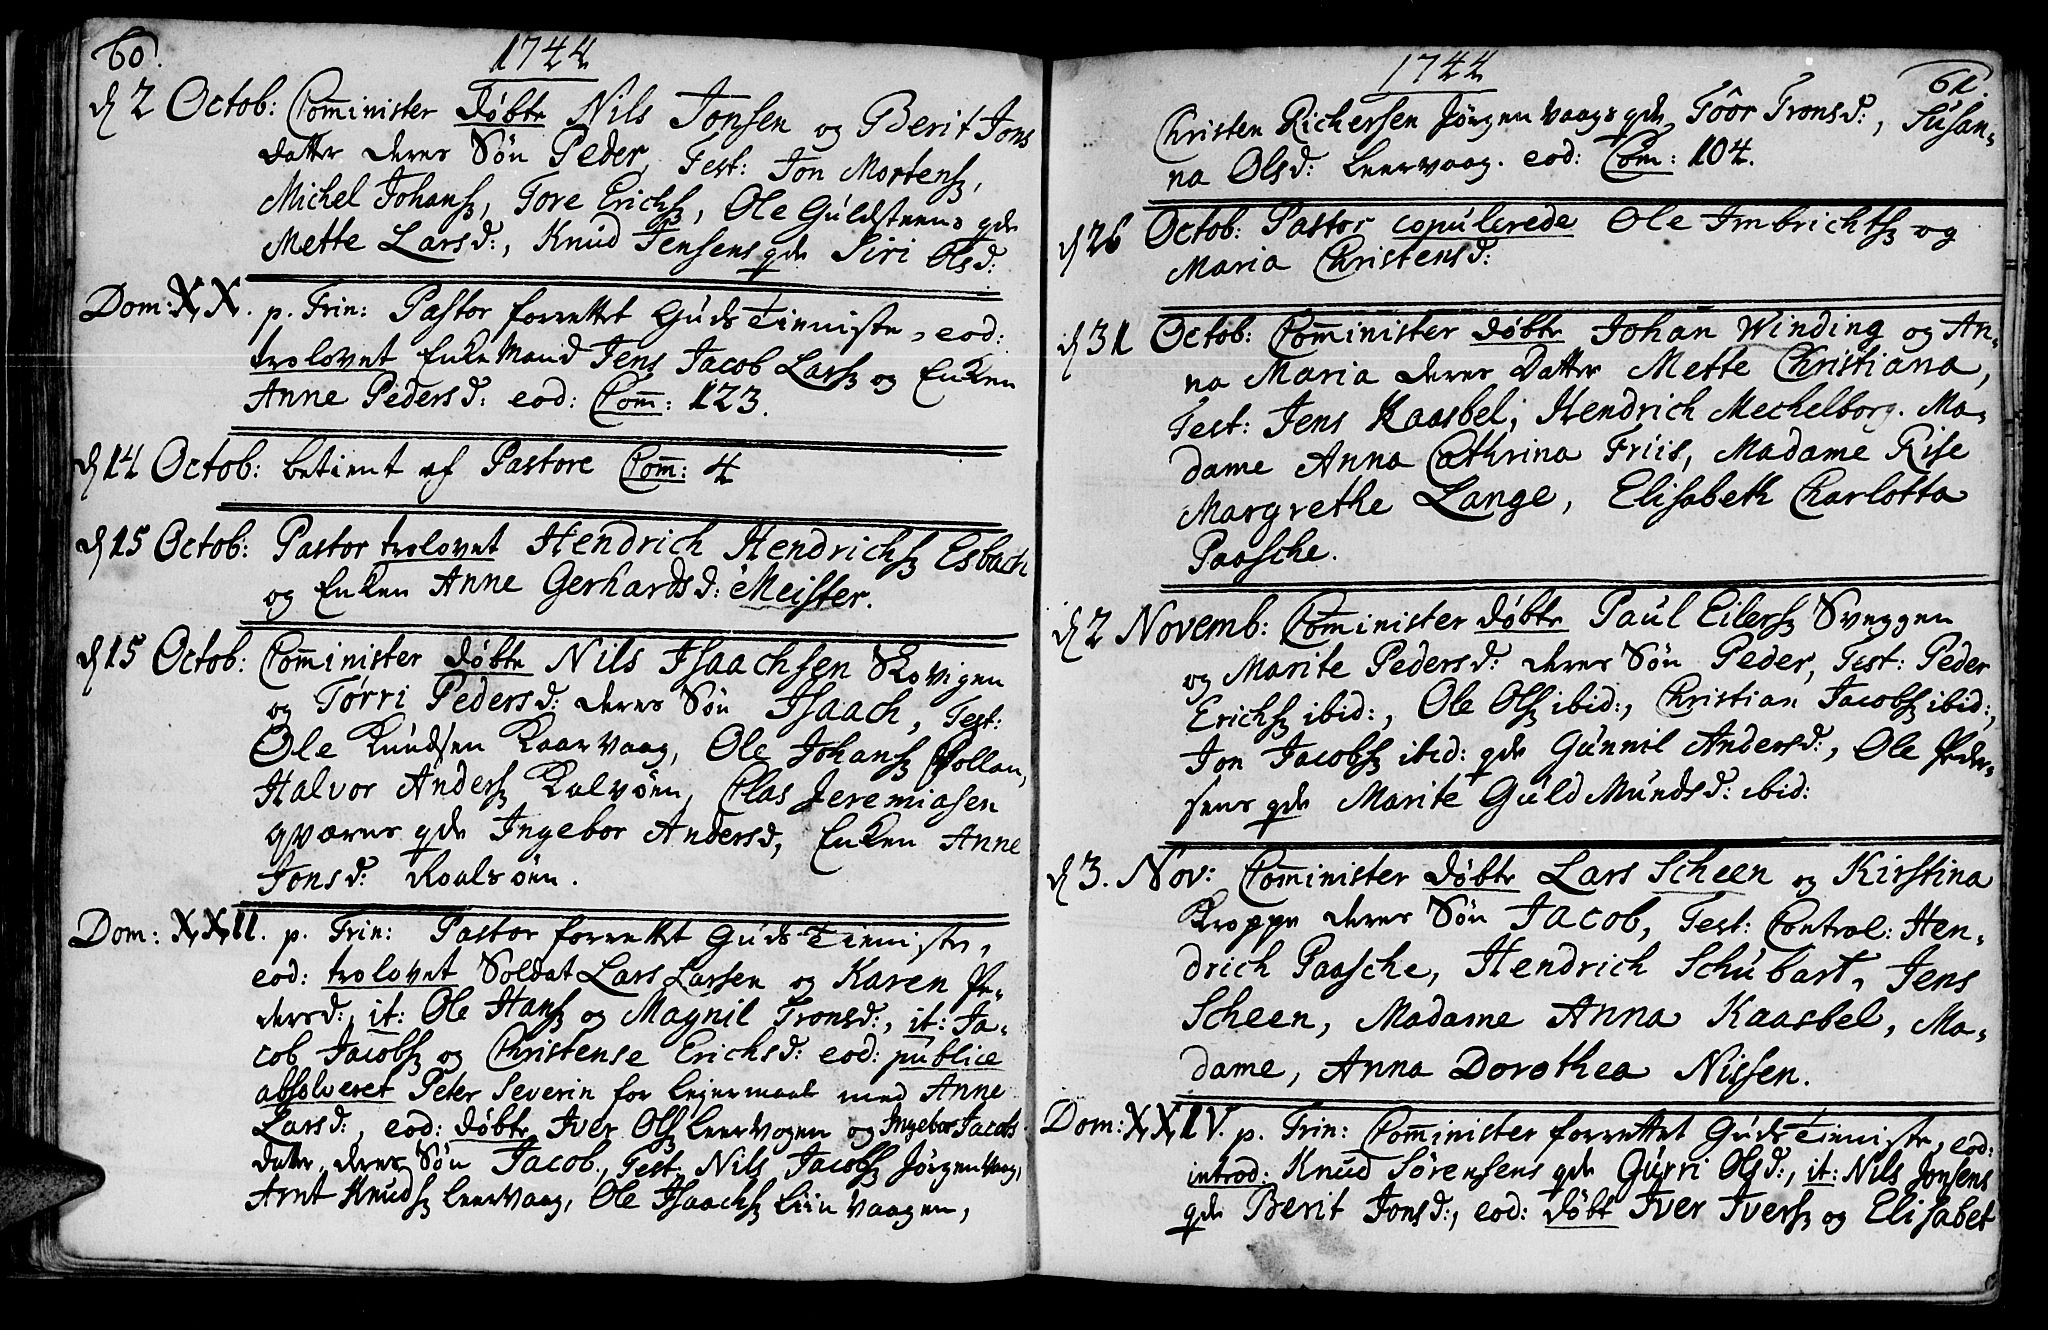 60.
1744
d 2 Octob: Com̄inister døbte Nils Jonsen og Berit Jons
datter deres Søn Peder, Test: Jon Mortens,
Michel Johans, Tore Erichs, Ole Guldsteens qde
Mette Larsd:, Knud Jensens qde Siri Olsd:
Dom: XX. p. Trin: Pastor forrettet Guds Tienniste, eod:
trolovet Enke Mand Jens Jacob Lars og Enken
Anne Pedersd: eod: Com̄: 123.
d 14 Octob: betient af Pastore Com̄: 4
d 15 Octob: Pastor trolovet Hendrich Hendrichs Esbach
og Enken Anne Gerhardsd: Meister.
d 15 Octob: Com̄inister døbte Nils Isaachsen Kovigen
og Tørri Pedersd: deres Søn Isaach, Test:
Ole Knudsen Kaarvaag, Ole Johans Pollan,
Halvor Anders Kalvøen, Clas Jeremiasen
qværnes qde Ingebor Andersd, Enken Anne
Jonsd: Roalsøen.
Dom: XXII. p. Trin: Pastor forrettet Guds Tienniste,
eod: trolovet Soldat Lars Larsen og Karen Pe-
dersd:, it: Ole Hans og Magnil Tronsd:, it: Ja-
cob Jacobs og Christense Erichsd: eod: publice
absolveret Peter Severin for Leiermaal med Anne
Larsd:, eod: døbte Iver Ols Leervogen og Ingebor Jacobs
datter, deres Søn Jacob, Test: Nils Jacobs Jørgenvaag,
Arnt Knuds Leervaag, Ole Isaachs Liin vaagen,
1744
61.
Christen Richersen Jørgen vaags qde Toor Tronsd:, Susan-
na Olsd: Leervaag. eod: Com̄: 104.
d 26 Octob: Pastor copulerede Ole Imbrichts og
Maria Christensd:
d 31 Octob: Com̄inister døbte Johan Winding og An-
na Maria deres Datter Mette Christiana,
Test: Jens Kaasbel, Hendrich Mechelborg. Ma-
dame Anna Cathrina Friis, Madame Rise
Margrethe Lange, Elisabeth Charlotta
Paasche.
d 2 Novemb: Com̄inister døbte Paul Eilers Sveggen
og Marite Pedersd: deres Søn Peder, Test: Peder
Erichs ibid:, Ole Ols ibid:, Christian Jacobs ibid:,
Jon Jacobs ibid: qde Gunnil Andersd:, Ole Peder-
sens qde Marite GuldMundsd: ibid:
d 3. Nov: Com̄inister døbte Lars Scheen og Kirstina
Kroppe deres Søn Jacob, Test: Control: Hen-
drich Paasche, Hendrich Schubart, Jens
Scheen, Madame Anna Kaasbel, Ma-
dame, Anna Dorothea Nissen.
Dom: XXIV. p. Trin: Com̄inister forrettet Guds Tienniste, eod:
introd: Knud Sørensens qde Gurri Olsd:, it: Nils Jonsens
qde Berit Jonsd:, eod: døbt Iver Ivers og Elisabet